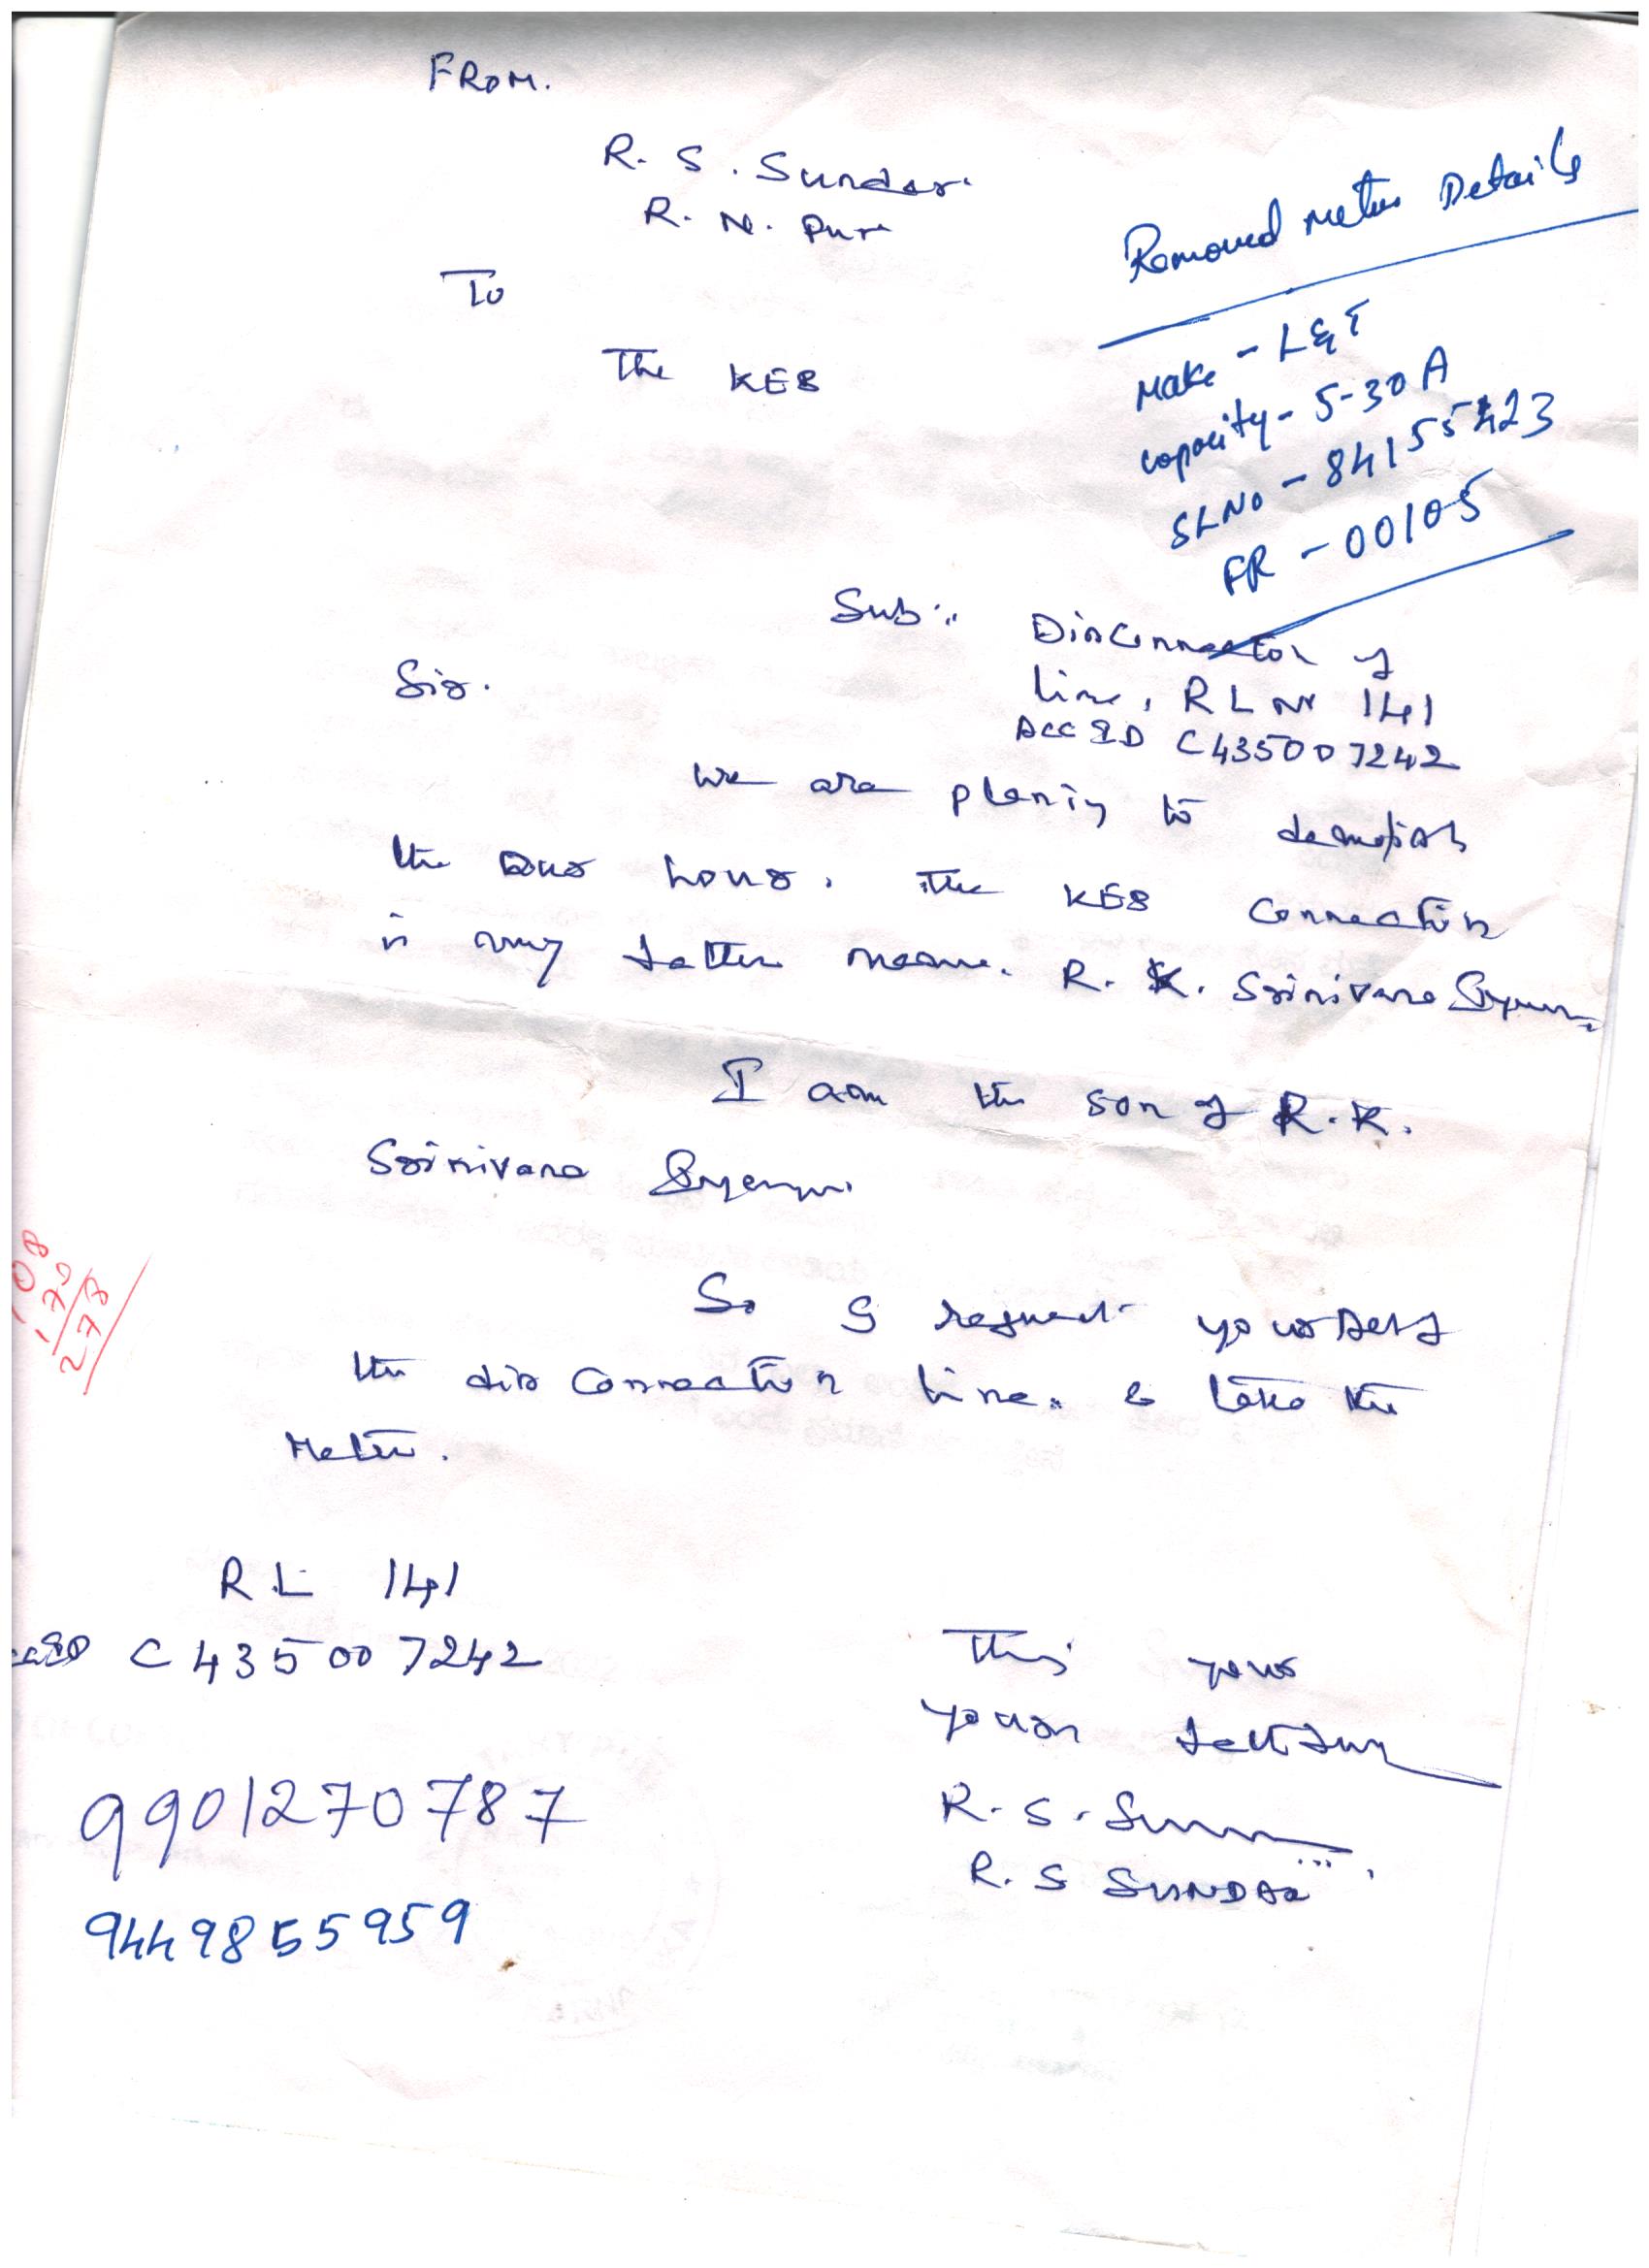 FROM.
R. S. Sundar
R. N. Pur
To
The KEB
Removed meter Details
Make - L&T
capacity - 5-30 A
SLNO - 84155423
FR - 00105
Sub:: Disconnection of
line, RL No 141
ACC ID C435007242
Sir.
We are planing to demolish
the our house. The KEB connection
is my father name. R. K. Srinivasa Iyengar
I am the son of R. K.
Srinivasa Iyengar
So I request yourself
the dis connection line. & take the
Meter.
RL 141
C435007242
9901270787
9449855959
This your
yours faithfully
R. S. 
R. S SUNDAR
108
170
278